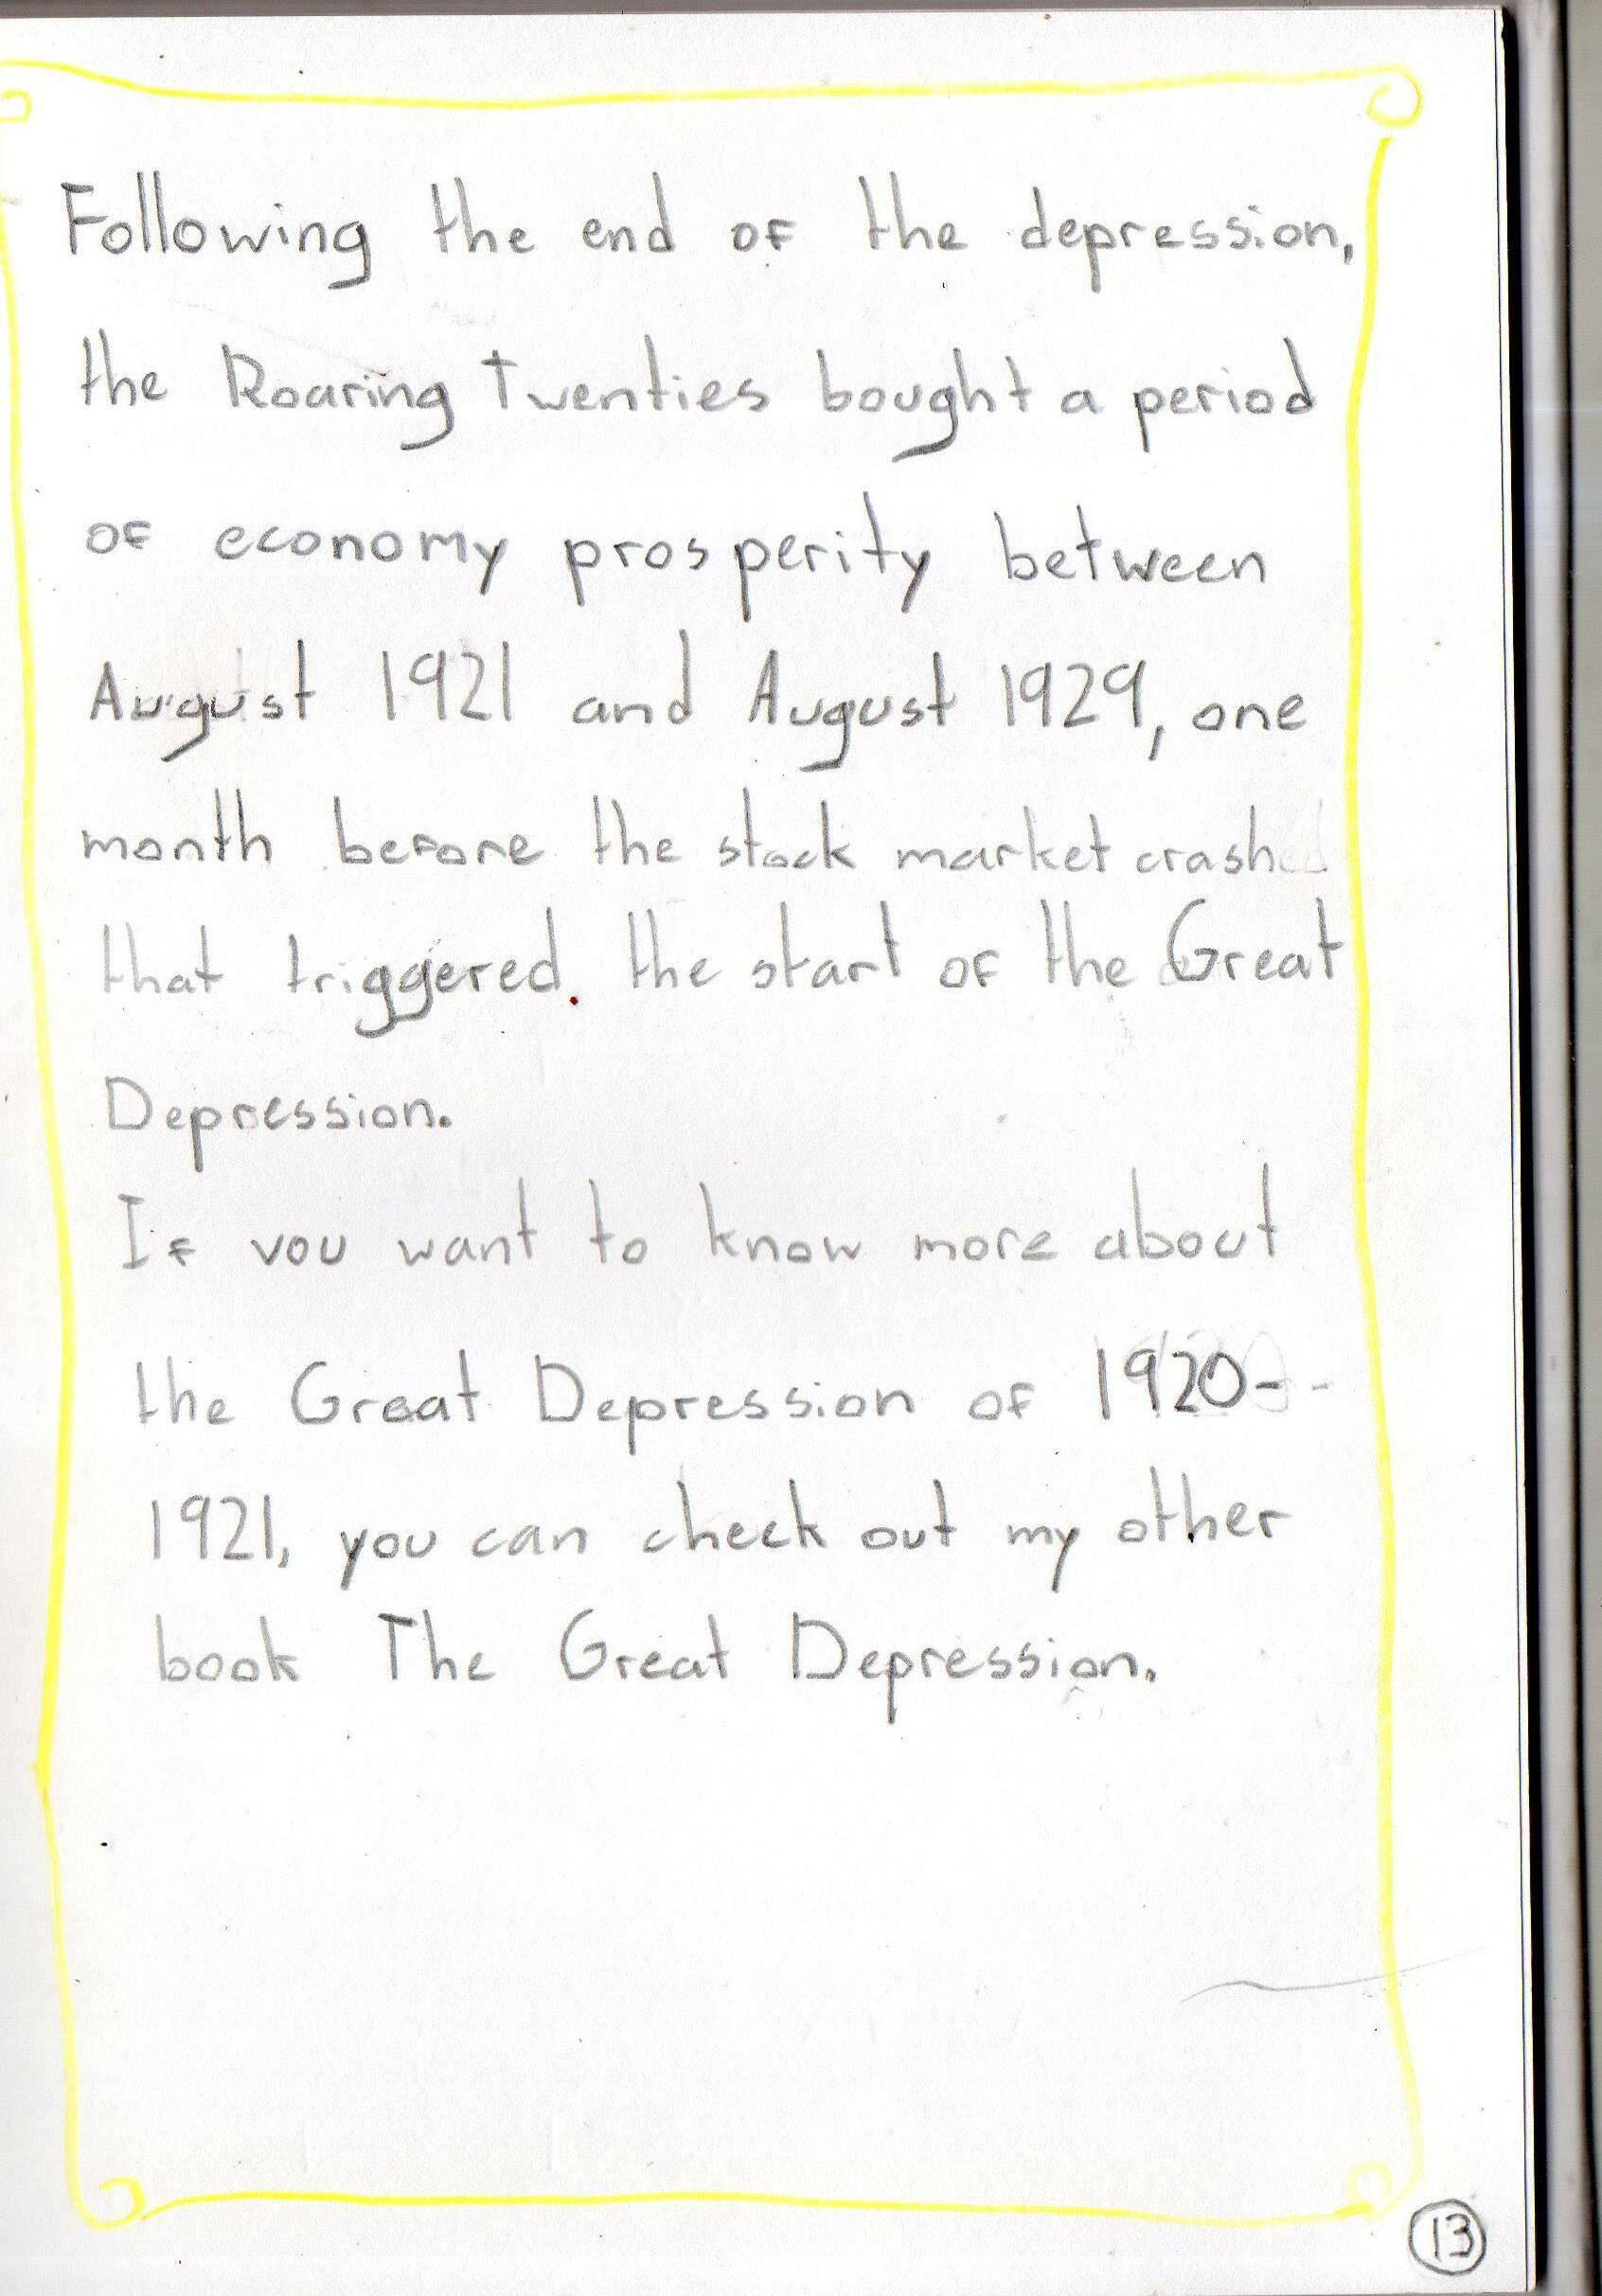 Following the end of the depression,
the Roaring Twenties bought a period
of economy prosperity between
August 1921 and August 1929, one
month before the stock market crash
that triggered the start of the Great
Depression.
If you want to know more about
the Great Depression of 1920-
1921, you can check out my other
book The Great Depression.
13